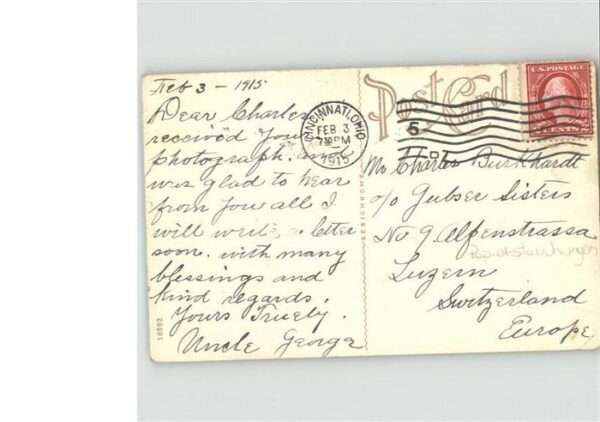 Feb 3 - 1915
Dear Charles
received your
photograph. and
was glad to hear
from you all I
will write a letter
soon. with many
blessings and
kind regards.
Yours Truely.
Uncle George
Post Card
CINCINNATI, OHIO
FEB 3
PM
1915
5
U.S. POSTAGE
2 CENTS 2
Mr Charles Burkhardt
c/o Gubser Sisters
No 9 Alpenstrassa
Luzern
Switzerland
Europe